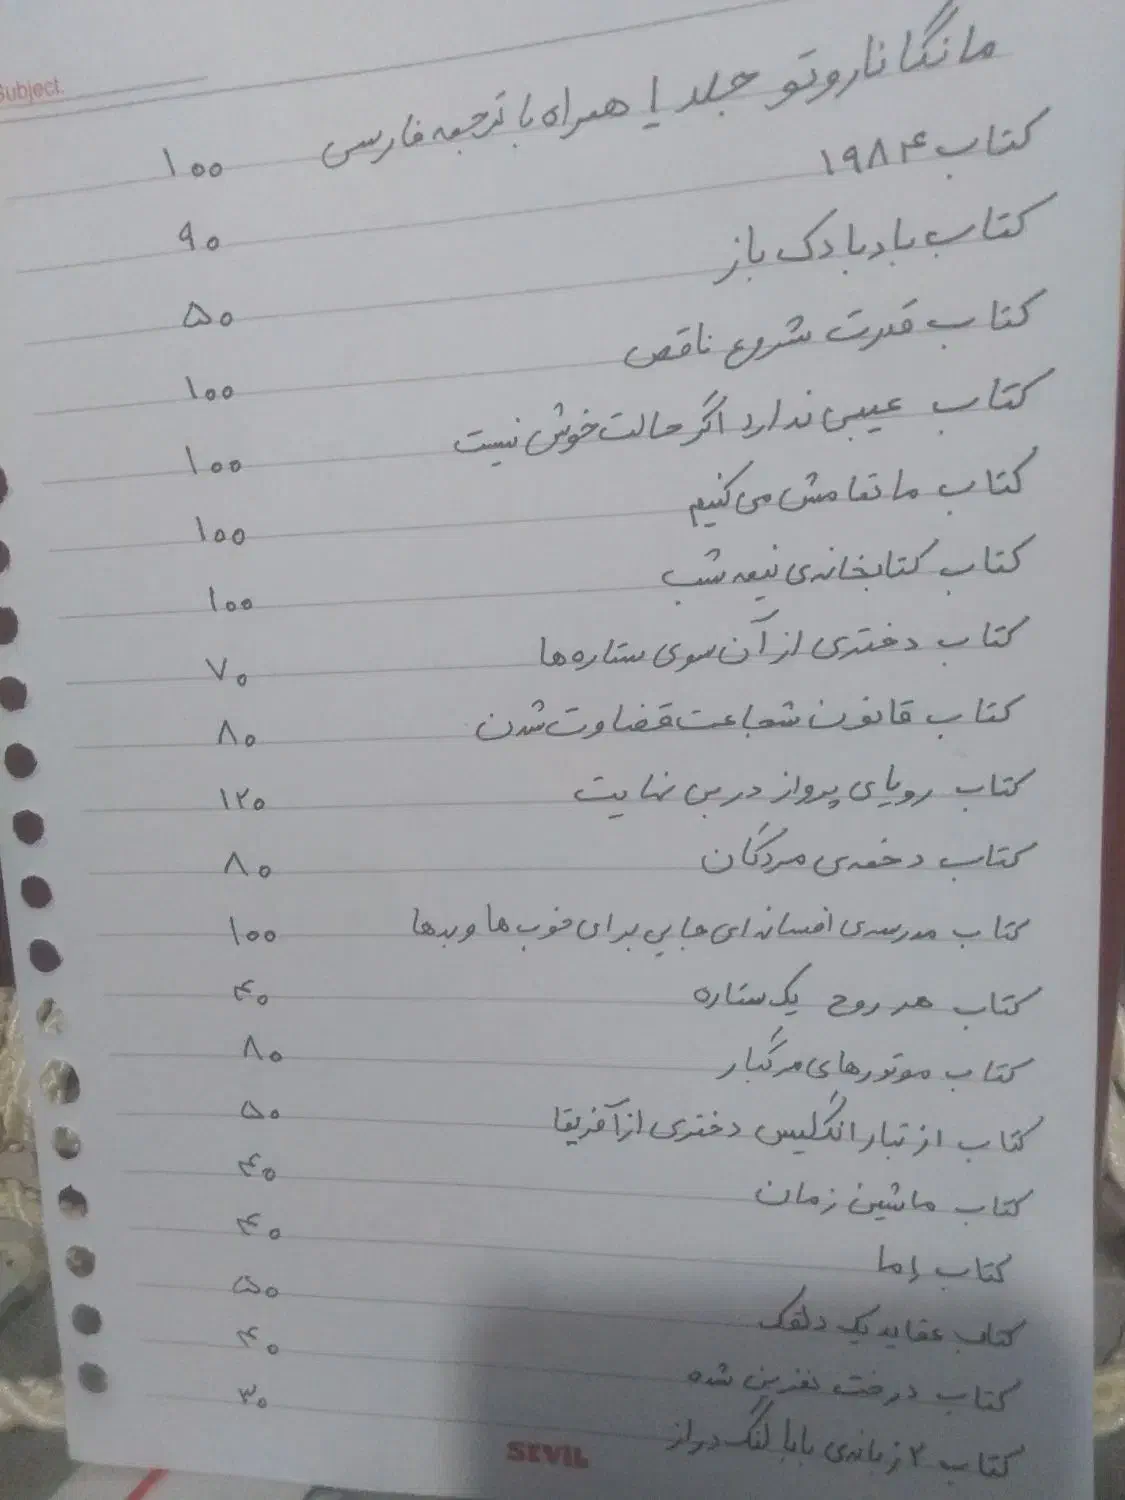 Subject.
مانگا ناروتو جلد ۱ همراه با ترجمه فارسی ۱۰۰
کتاب ۱۹۸۴ ۹۰
کتاب بادبادک باز ۵۰
کتاب قدرت شروع ناقص ۱۰۰
کتاب عیبی ندارد اگر حالت خوش نیست ۱۰۰
کتاب ما تمامش می‌کنیم ۱۰۰
کتاب کتابخانه‌ی نیمه شب ۱۰۰
کتاب دختری از آن سوی ستاره ها ۷۰
کتاب قانون شجاعت قضاوت شدن ۸۰
کتاب رویای پرواز در بی نهایت ۱۲۰
کتاب دخمه‌ی مردگان ۸۰
کتاب مدرسه‌ی افسانه‌ای جایی برای خوب ها و بدها ۱۰۰
کتاب هر روح یک ستاره ۴۰
کتاب موتورهای مرگبار ۸۰
کتاب از تبار انگلیس دختری از آفریقا ۵۰
کتاب ماشین زمان ۴۰
کتاب اِما ۴۰
کتاب عقاید یک دلقک ۵۰
کتاب درخت نفرین شده ۴۰
کتاب ۲ زبانه‌ی بابا لنگ دراز ۳۰
SEVIL